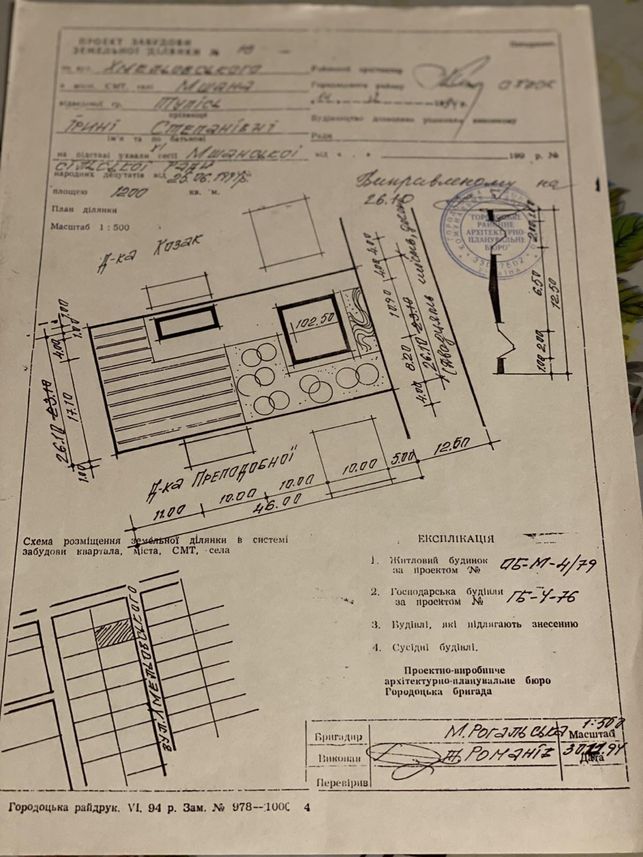 ПРОЕКТ ЗАБУДОВИ
ЗЕМЕЛЬНОЇ ДІЛЯНКИ № 10
на вул. Хмельовського
в місті, СМТ, селі Мшана
відведеної гр. Тупісь
прізвище
Ірині Степанівні
ім'я та по батькові
на підставі ухвали VI сесії Мшанської
сільської Ради
народних депутатів від 25.06.1994р.
площею 1200 кв. м.
План ділянки
Масштаб 1 : 500
Районний архітектор
Городоцького району
Будівництво дозволив
Ради
від « . » 199 р. №
Виправленому на
26.10
ГОРОДОЦЬКЕ
РАЙОННЕ
АРХІТЕКТУРНО-
ПЛАНУВАЛЬНЕ
БЮРО
УКРАЇНА
Д-ка Козак
102.50
1.00 4.00 17.10 1.00
26.10 23.10
4.00 4.00 10.90 8.20 4.00
26.10 23.10
2.00 6.50 2.00 1.00
12.50
Д-ка Преподобної
11.00 10.00 10.00 10.00 5.00 12.50
46.00
Схема розміщення земельної ділянки в системі
забудови квартала, міста, СМТ, села
вул. Хмельовського
ЕКСПЛІКАЦІЯ
1. Житловий будинок
за проектом № ОБ-М-4/79
2. Господарська будівля
за проектом № ГБ-У-76
3. Будівлі, які підлягають знесенню
4. Сусідні будівлі.
Проектно-виробниче
архітектурно-планувальне бюро
Городоцька бригада
Бригадир М. Рогальська 1:500 Масштаб
Виконав Т. Романів Дата
Перевірив
Городоцька райдрук. VI. 94 р. Зам. № 978—1000 4